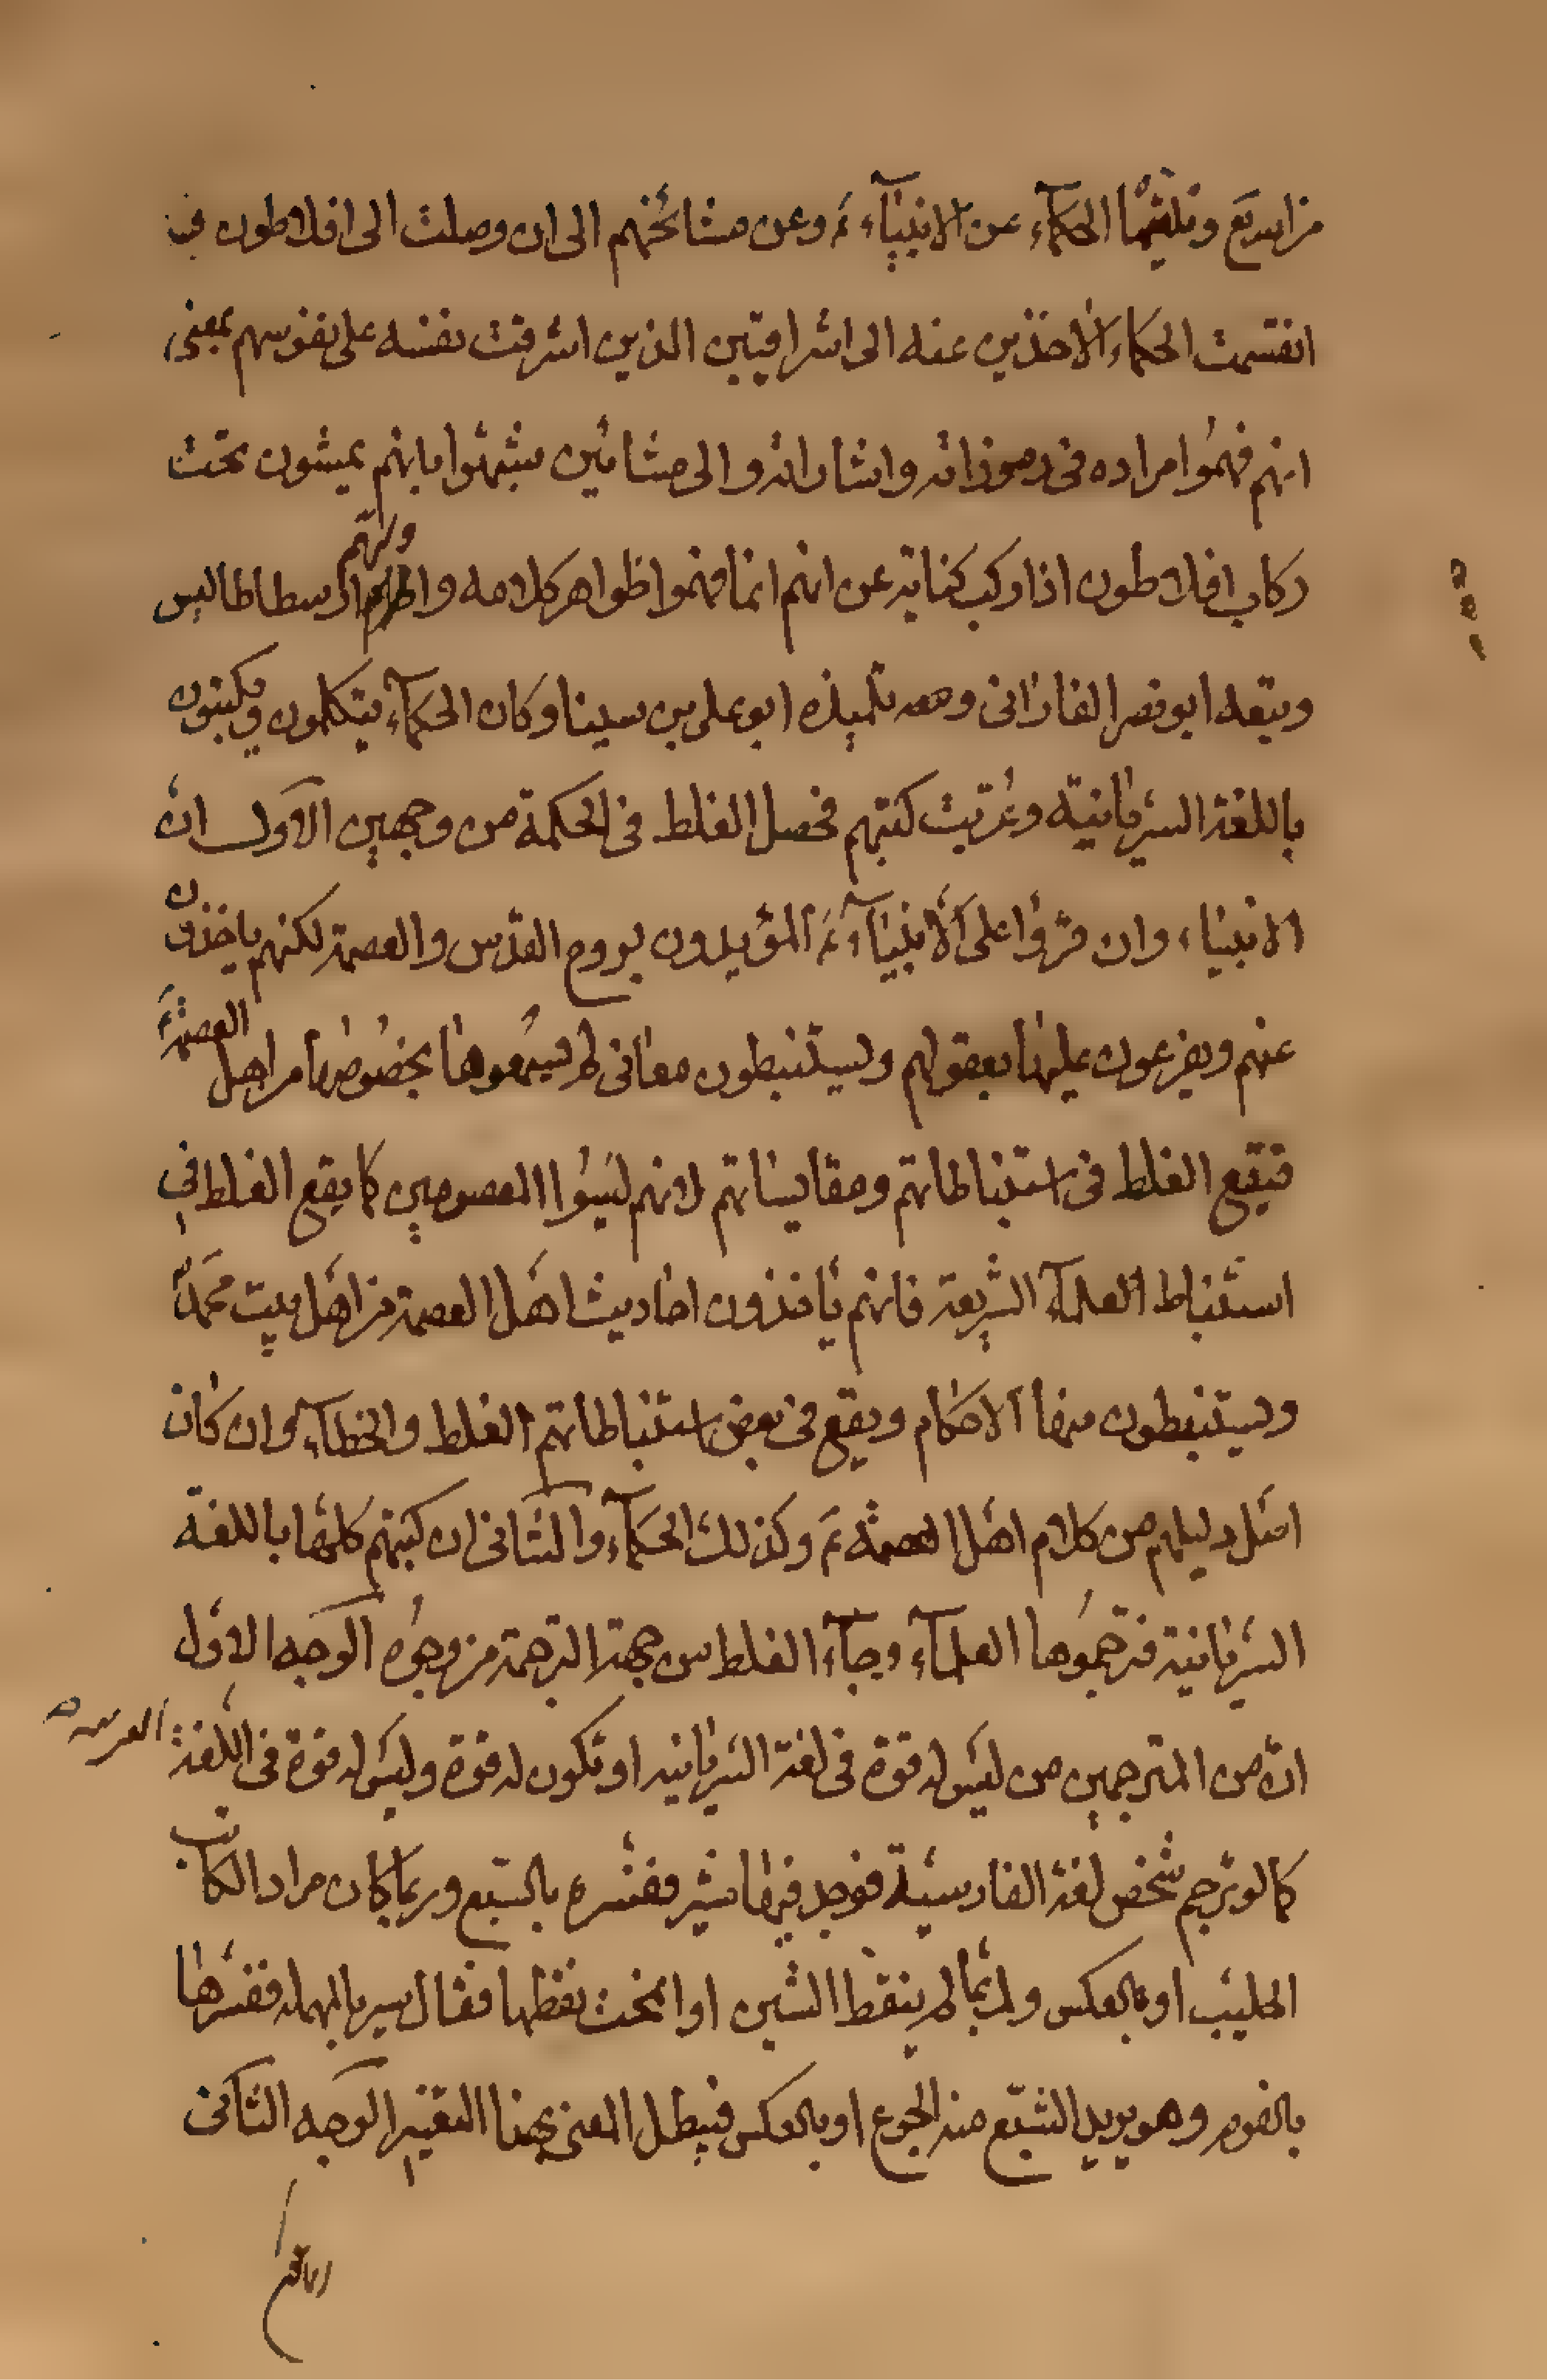 من ابدع وتلقتها الحكمآء عن الانبيآء ع وعن مشائخهم الى ان وصلت الى افلاطون
انقسمت الحكماء الاخذين عنه الى اشراقيين الذين اشرقت نفسه على نفوسهم بمعنى
انهم فهموا مراده فى رموزاته واشاراته والى مشائين شبهوا بانهم يمشون تحت
ركاب افلاطون اذا ركب كناية عن انهم انما فهموا ظواهر كلامه واولهم ارسطاطاليس
وتبعه ابو نصر الفارابى ومعه تلميذه ابو على بن سينا وكان الحكمآء يتكلمون ويكتبون
باللغة السريانية وعربت كتبهم فحصل الغلط فى الحكمة من وجهين الاول ان
الانبياء وان قرؤا على الانبيآء ع المؤيدون بروح القدس والعصمة لكنهم ياخذون
عنهم ويفرعون عليها بعقولهم ويستنبطون معانى لم يسمعوها بخصوصها من اهل العصمة ع
فيقع الغلط فى استنباطاتهم ومقايساتهم لانهم ليسوا المعصومين كما يقع الغلط فى
استنباط العلمآء الشريعة فانهم يأخذون احاديث اهل العصمة من اهل بيت محمد ص
ويستنبطون منها الاحكام ويقع فى بعض استنباطاتهم الغلط والخطآء وان كان
اصل دليلهم من كلام اهل العصمة ع وكذلك الحكمآء والثانى ان كتبهم كلها باللغة
السريانية فترجموها العلمآء وجآء الغلط من جهة الترجمة من وجوه الوجه الاول
ان من المترجمين من ليس له قوة فى لغة السريانيه او تكون له قوة وليس له قوة فى اللغة العربيه
كما لو ترجم شخص لغة الفارسية فوجد فيها شير ففسره بالسبع وربما كان مراد الكاتب
الحليب او بالعكس ولربما لم ينقط الشين او انمحت نقطها فقال سير بالمهمله ففسرها
بالفوم وهو يريد الشبع ضد الجوع او بالعكس فيبطل المعنى بهذا التغيير الوجه الثانى